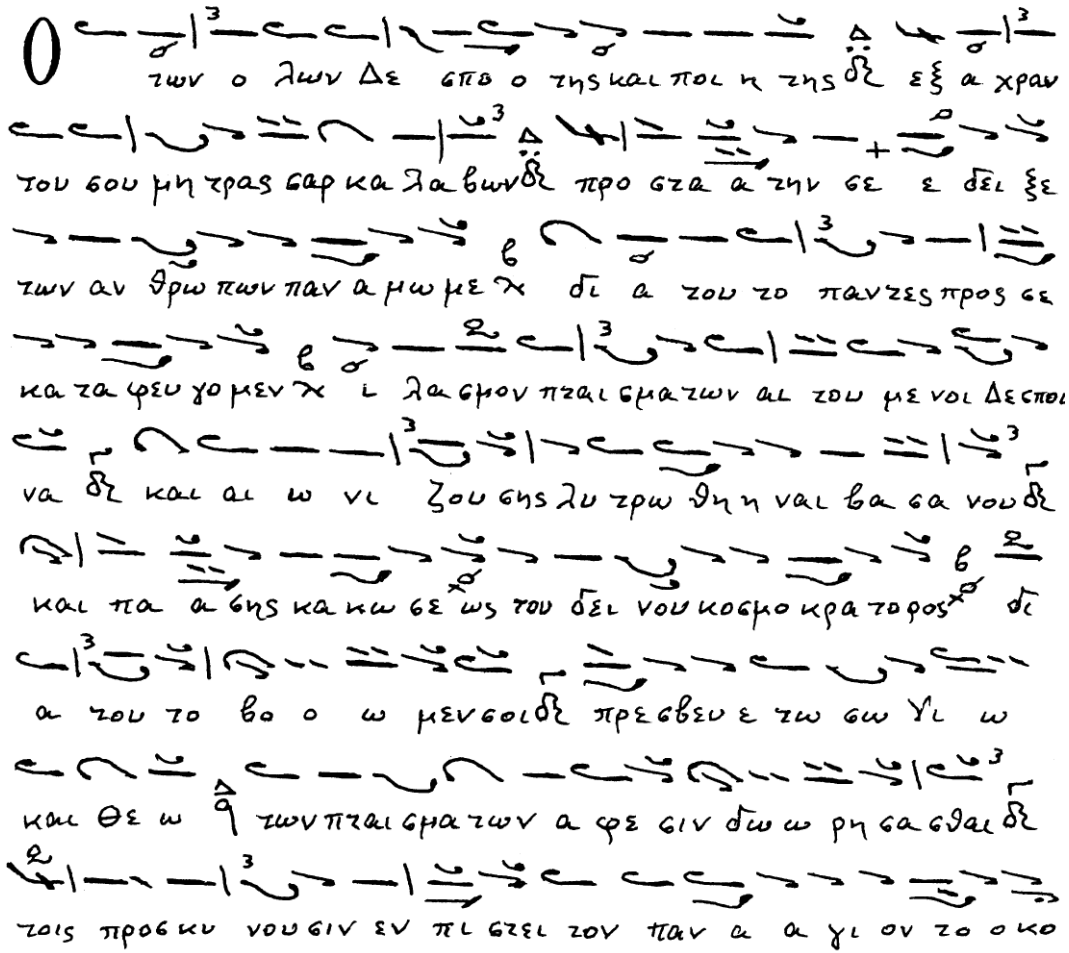 Ο των ο λων Δε σπο ο της και ποι η της εξ α χραν
του σου μη τρας σαρ κα λα βων προ στα α την σε ε δει ξε
των αν θρω πων παν α μω με δι α του το παν τες προς σε
κα τα φευ γο μεν ι λα σμον πται σμα των αι του με νοι Δε σποι
να και αι ω νι ζου σης λυ τρω θη η ναι βα σα νου
και πα α σης κα κω σε ως του δει νου κοσμο κρα το ρος δι
α του το βο ο ω μεν σοι πρε σβευ ε τω σω Υι ω
και Θε ω των πται σμα των α φε σιν δω ω ρη σα σθαι
τοις προσ κυ νου σιν εν πι στει τον παν α α γι ον το ο κο